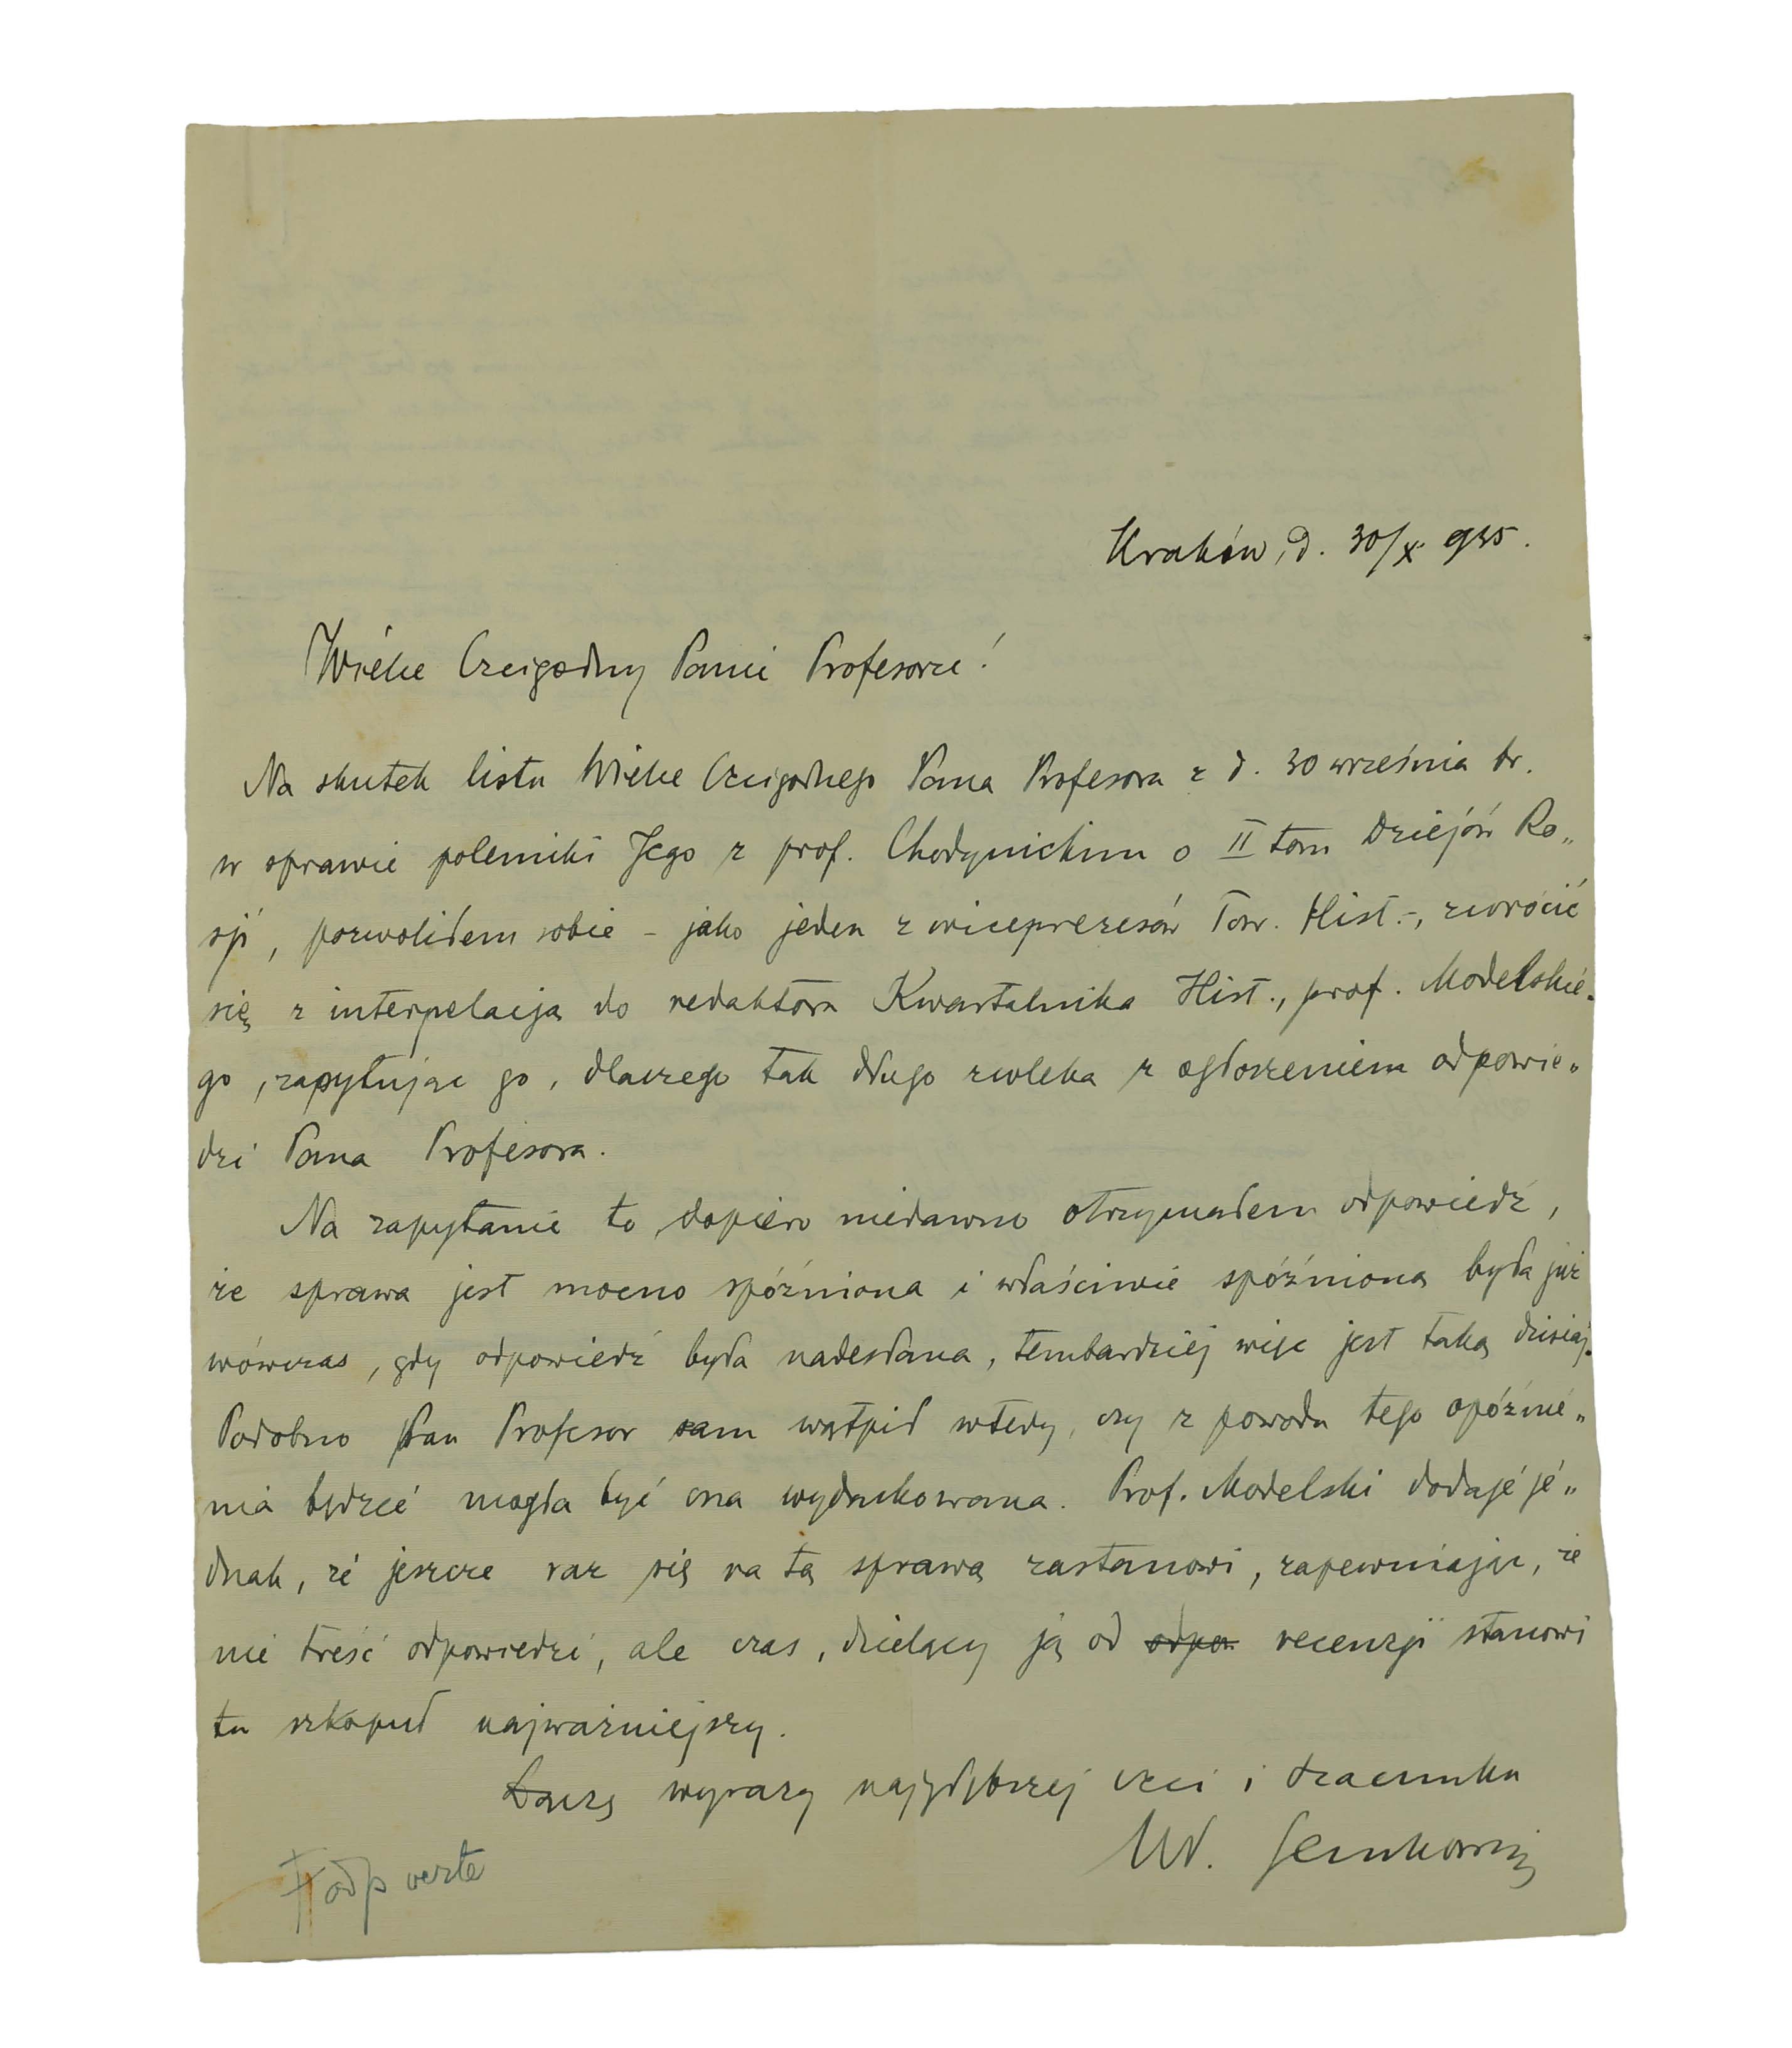 Kraków, d. 30/X. 935.
Wielce Czcigodny Panie Profesorze!
Na skutek listu Wielce Czcigodnego Pana Profesora z d. 30 września br.
w sprawie polemiki Jego z prof. Chodynickim o II tom Dziejów Ro„
sji, pozwoliłem sobie – jako jeden z wiceprezesów Tow. Hist. –, zwrócić
się z interpelacją do redaktora Kwartalnika Hist., prof. Modelskie„
go, zapytując go, dlaczego tak długo zwleka z ogłoszeniem odpowie„
dzi Pana Profesora.
Na zapytanie to dopiero niedawno otrzymałem odpowiedź,
że sprawa jest mocno spóźniona i właściwie spóźnioną była już
wówczas, gdy odpowiedź była nadesłana, tembardziej więc jest taką dzisiaj.
Podobno Pan Profesor sam wątpił wtedy, czy z powodu tego opóźnie„
nia będzie mogła być ona wydrukowana. Prof. Modelski dodaje je„
dnak, że jeszcze raz się na tą sprawą zastanowi, zapewniając, że
nie treść odpowiedzi, ale czas, dzielący ją od odpow recenzji stanowi
tu szkopuł najważniejszy.
Łączę wyrazy najgłębszej czci i szacunku
Wł. Semkowicz
odp verte